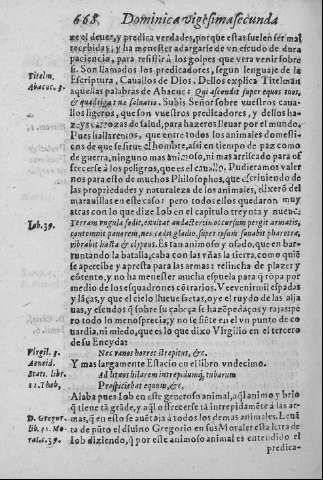 668 Dominica vigesimasecunda
ne el deuer, y predica verdades, porque estas suelen ser mal
recebidas; y ha menester adargarse de vn escudo de dura
paciencia, para resistir a los golpes que vera venir sobre
si. Son llamados los predicadores, segun lenguaje de la
Escriptura, Cauallos de Dios. Dellos explica Titelman
Titelm.
Abacuc. 3.
aquellas palabras de Abacuc: Qui ascendis super equos tuos,
& quadrigæ tuæ saluatio. Subis Señor sobre vuestros caua-
llos ligeros, que son vuestros predicadores, y dellos ha-
zeys carrozas de salud, para hazeros lleuar por el mundo.
Pues hallaremos, que entre todos los animales domesti-
cos de que se sirue el hombre, assi en tiempo de paz como
de guerra, ninguno mas animoso, ni mas arriscado para of
frecerse à los peligros, que es el cauallo. Pudieramos valer
nos para esto de muchos Philosophos, que escriuiendo de
las propriedades y naturaleza de los animales, dixerõ del
marauillas en este caso: pero todos ellos quedaron muy
atras con lo que dize Iob en el capitulo treynta y nueue
Iob. 39.
Terram vngula fodit, exultat audacter: in occursum pergit armatis,
contemnit pauorem, nec cedit gladio, super ipsum sonabit pharetra,
vibrabit hasta & clypeus. Es tan animoso y osado, que en bar-
runtando la batalla, caba con las vñas la tierra, como quiẽ
se apercibe y apresta para las armas: relincha de plazer y
cõtento, y no ha menester aun la espuela para q̃ rõpa por
medio de los esquadrones cõtrarios. Vee venir mil espadas
y lãças, y que el cielo llueue saetas, oye el ruydo de las alja
uas, y escudos q̃ sobre su cabeça se hazẽ pedaços, y rasgas: pe
ro todo lo menosprecia; y no se siẽte en el vn punto de co
uardia, ni miedo, que es lo que dixo Virgilio en el tercero
de su Eneyda:
Virgil. 3.
Aeneid.
Nec vanos horret strepitus, &c.
Y mas largamente Estacio en el libro vndecimo.
Stati. libr.
11. Theb.
Ad lituos hilarem intrepidumq́; tubarum
Prospiciebat equum, &c.
Alaba pues Iob en este generoso animal, aq̃l animo y brio
q̃ tiene tã grãde, y aq̃l offrecerse tã intrepidamẽte à las ar-
mas, q̃ en esto se auẽtaja à todos los demas animales. Leuã
D. Gregor.
lib. 31. Mo-
ral. c. 39.
ta de pũto el diuino Gregorio en sus Morales la letra de
Iob diziendo, q̃ por este animoso animal es entendido el
predica-